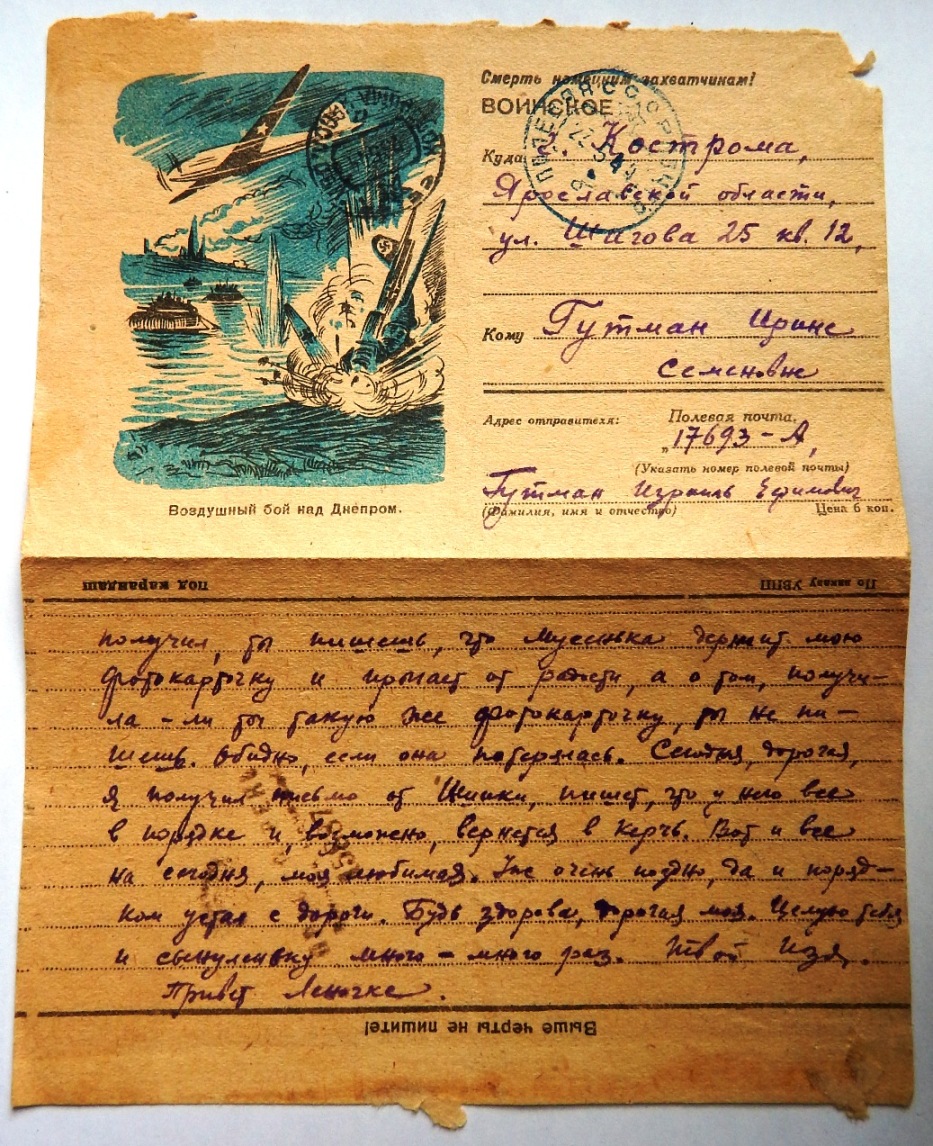 Смерть немецким захватчинам!
ВОИНСКОЕ
Куда г. Кострома,
Ярославской области,
ул. Шагова 25 кв. 12,
Кому Гутман Ирине
Семеновне
Адрес отправителя: Полевая почта,
„17693-А,
(Указать номер полевой почты)
Гутман Израиль Ефимович
(Фамилия, имя и отчество) Цена 6 коп.
Воздушный бой над Днепром.
под карандаш По заказу УВПП
получил, ты пишешь, что Мусинька держит мою
фотокарточку и прыгает от радости, а о том, получи-
ла-ли ты такую же фотокарточку, ты не пи-
шешь. Обидно, если она потерялась. Сегодня, дорогая,
я получил письмо от Шишки, пишет, что у него все
в порядке и, возможно, вернется в Керчь. Вот и все
на сегодня, моя любимая. Уже очень поздно, да и поряд-
ком устал с дороги. Будь здорова, дорогая моя. Целую тебя
и сынуленьку много-много раз. Твой Изя.
Привет Леночке.
Выше черты не пишите!